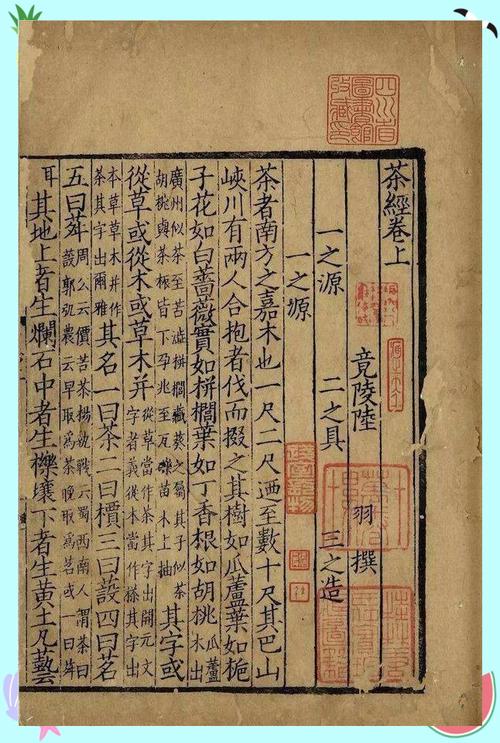 四川省
圖書館
收藏印
茶經卷上
竟陵陸　羽　撰
一之源　二之具　三之造
一之源
茶者南方之嘉木也一尺二尺迺至數十尺其巴山
峽川有兩人合抱者伐而掇之其樹如瓜蘆葉如梔
子花如白薔薇實如栟櫚葉如丁香根如胡桃瓜蘆木出
廣州似茶至苦澁栟櫚蒲葵之屬其子似茶胡桃與茶根皆下孕兆至瓦礫苗木上抽其字或
從草或從木或草木并從草當作茶其字出開元文字者義從木當作搽其字出
本草草木并作荼其字出爾雅其名一曰茶二曰檟三曰蔎四曰茗
五曰荈周公云檟苦荼楊執戟云蜀西南人謂茶曰蔎郭弘農云早取爲茶晚取爲茗或一曰荈
耳其地上者生爛石中者生櫟壤下者生黄土凡藝